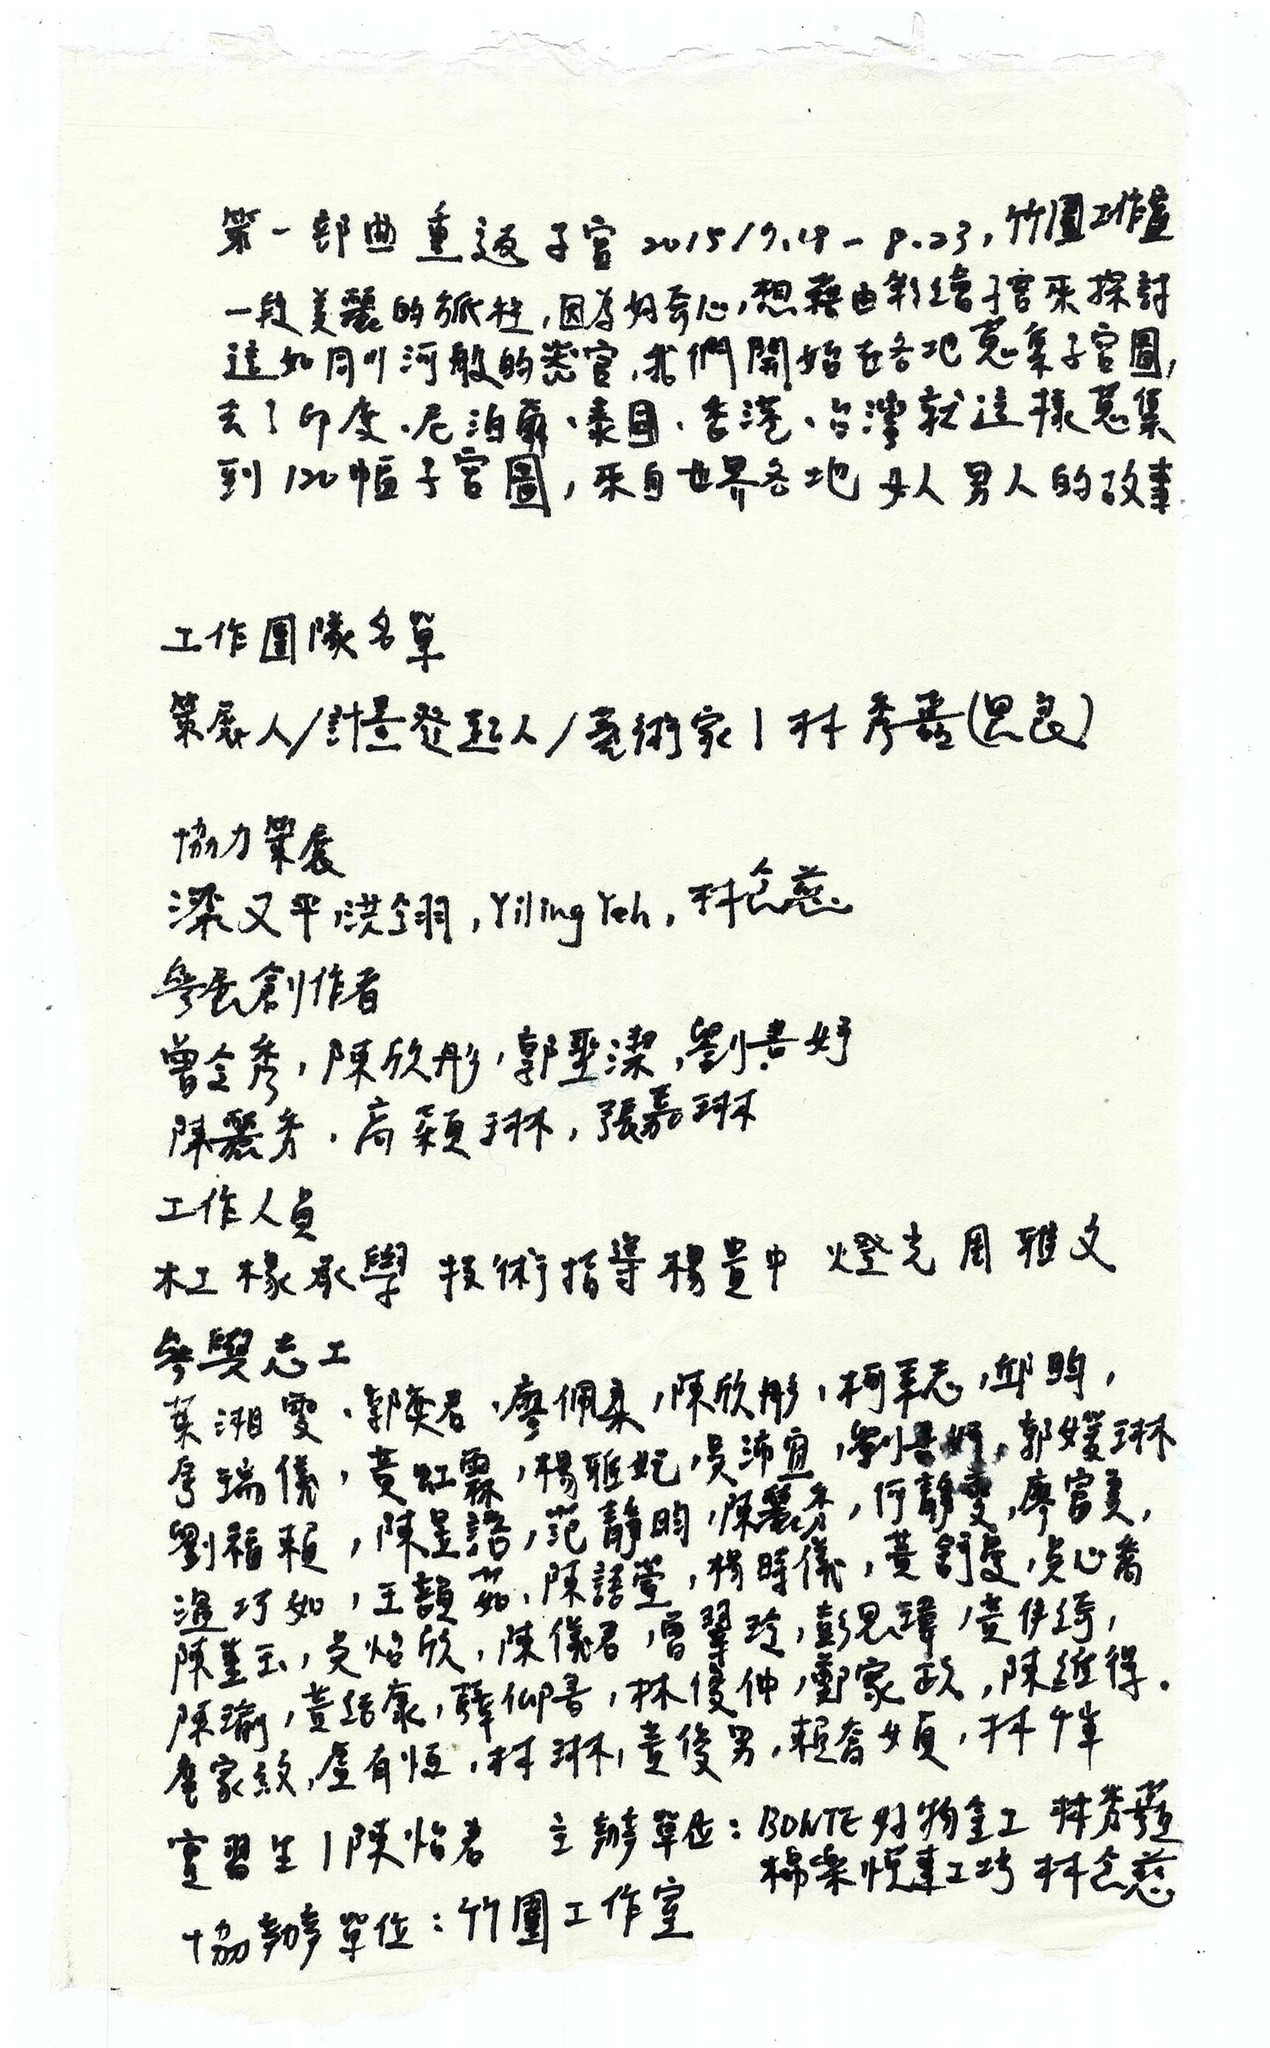 第一部曲 重返子宮 2015/7.19-8.23, 竹圍工作室
一段美麗的旅程,因為好奇心,想藉由彩繪子宮來探討
這如同川河般的密宮,我們開始在各地蒐集子宮圖,
去了印度、尼泊爾、泰國、香港、台灣就這樣蒐集
到120幅子宮圖,來自世界各地女人男人的故事
工作團隊名單
策展人/計畫發起人/藝術家|林秀(思良)
協力策展
梁又平,洪翎,Yiling Yeh,林念慈
參展創作者
曾令秀,陳欣彤,郭聖潔,劉書妤
陳麗秀,高穎琳,張嘉琳
工作人員
木工 椽承學 技術指導 楊貴中 燈光 周雅文
參與志工
葉湘雯、郭奕君、廖佩柔,陳欣彤,柯芊志,邱昀,
瑞儀,黃虹霖,楊雅妃,吳沛宜,劉書妤,郭媛琳
劉福賴,陳昱語,范靜昀,陳麗秀,何靜雯,廖富美,
溫巧如,王韻茹,陳語萱,楊時儀,黃舒愛,
陳玉,炤欣,陳儀君,曾翠玲,彭思瑋,黃伊綺,
陳瑜,黃結康,薛仰善,林俊仲,鄭家政,陳延得.
家紋,盧有恒,林琳,黃俊男,賴奢媜,林
實習生|陳怡君 主辦單位:BONTE好物金工 林秀
棉樂悅事工坊 林念慈
協辦單位:竹圍工作室